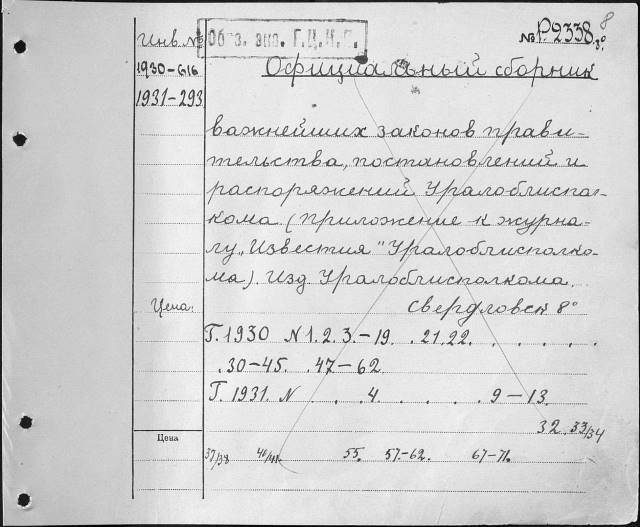 № Р2338 8
8°
Инв. №
Обяз. экз. Г.Ц.К.П.
1930-616
1931-293
Официальный сборник
важнейших законов прави-
тельства, постановлений и
распоряжений Уралоблиспол-
кома. (Приложение к журна-
лу „Известия" Уралоблисполко-
ма). Изд. Уралоблисполкома.
Цена:
Свердловск 8°
Г. 1930 N 1. 2. 3.-19. .21.22. . . . . . .
.30-45. .47-62.
Г. 1931. N . . 4. . . . . 9-13.
32. 33/34
Цена
37/38 40/41. 55. 57-62. 67-71.